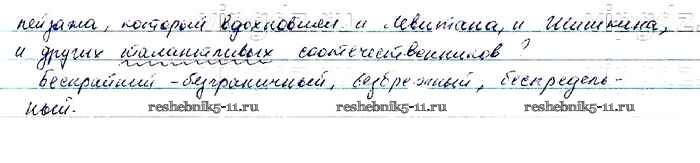 пейзажа, который вдохновлял и Левитана, и Шишкина,
и других талантливых соотечественников?
Бескрайний - безграничный, безбрежный, беспредель-
ный.
reshebnik5-11.ru reshebnik5-11.ru reshebnik5-11.ru